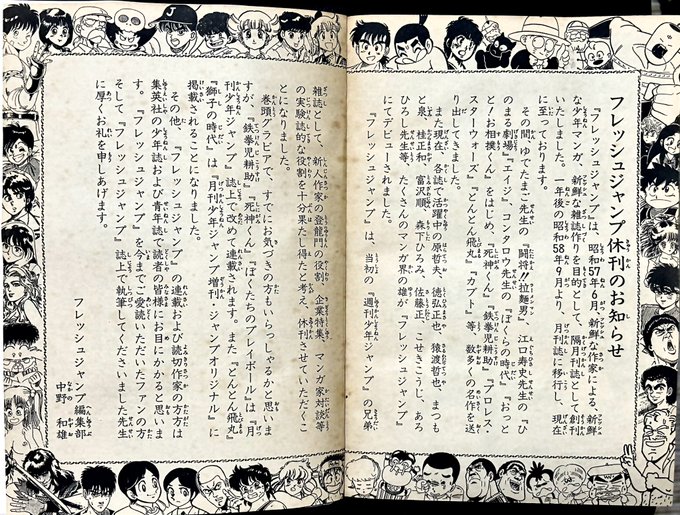 フレッシュジャンプ休刊のお知らせ
『フレッシュジャンプ』は、昭和57年6月、新鮮な作家による、新鮮
な少年マンガ、新鮮な雑誌作りを目的として、隔月刊誌として創刊
いたしました。一年後の昭和58年9月より、月刊誌に移行し、現在
に至っております。
その間、ゆでたまご先生の『闘将!!拉麵男』、江口寿史先生の『ひ
のまる劇場』『エイジ』、コンタロウ先生の『ぼくらの時代』『おっと
と!お相撲くん』をはじめ、『死神くん』『鉄拳児耕助』『プロレス・
スターウォーズ』『とんどん飛丸』『カブト』等、数多くの名作を送
り出してきました。
また現在、各誌で活躍中の原哲夫、徳弘正也、猿渡哲也、まつも
と泉、桂正和、富沢順、森下ひろみ、佐藤正、こせきこうじ、あろ
ひろし先生等、たくさんのマンガ界の雄が『フレッシュジャンプ』
にてデビューされました。
『フレッシュジャンプ』は、当初の『週刊少年ジャンプ』の兄弟
雑誌として、新人作家の登龍門の役割、企業特集、マンガ家対談等
の実験誌的な役割を十分果たし得たと考え、休刊させていただくこ
とになりました。
巻頭グラビアで、すでにお気づきの方もいらっしゃるかと思いま
すが、『鉄拳児耕助』『死神くん』『ぼくたちのプレイボール』は『月
刊少年ジャンプ』誌上で改めて連載されます。また『とんどん飛丸』
『獅子の時代』は『月刊少年ジャンプ増刊・ジャンプオリジナル』に
掲載されることになりました。
その他、『フレッシュジャンプ』の連載および読切作家の方方は
集英社の少年誌および青年誌で読者の皆様にお目にかかると思いま
す。『フレッシュジャンプ』を今までご愛読いただいたファンの方
そして、『フレッシュジャンプ』誌上で執筆してくださいました先生
に厚くお礼を申しあげます。
フレッシュジャンプ編集部
中野 和雄